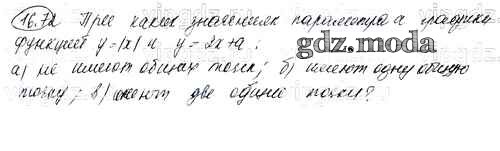 16.72 При каких значениях параметра а графики
функций y=|x| и y=2x+a:
gdz.moda
а) не имеют общих точек; б) имеют одну общую
точку; в) имеют две общие точки?